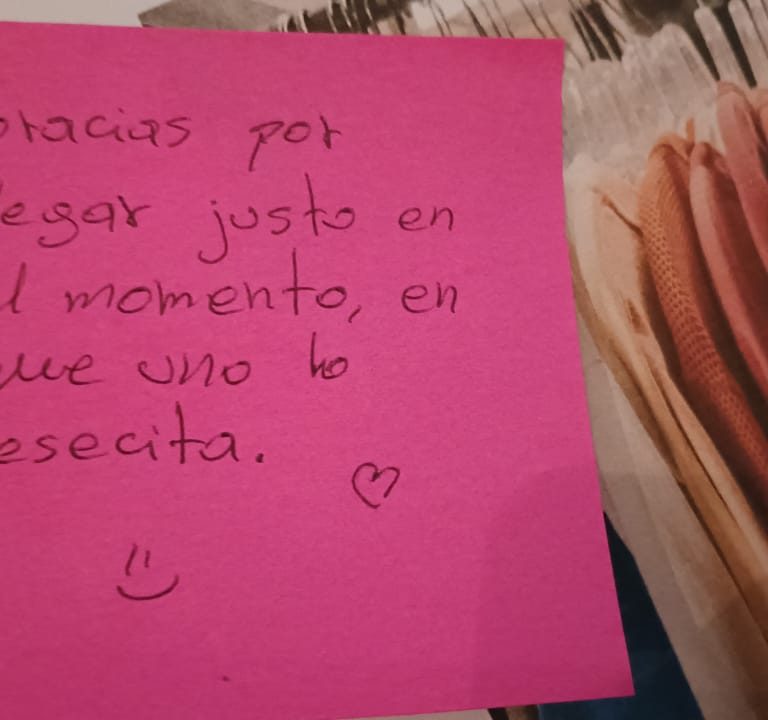 racias por
egar justo en
l momento, en
ue uno lo
esecita.